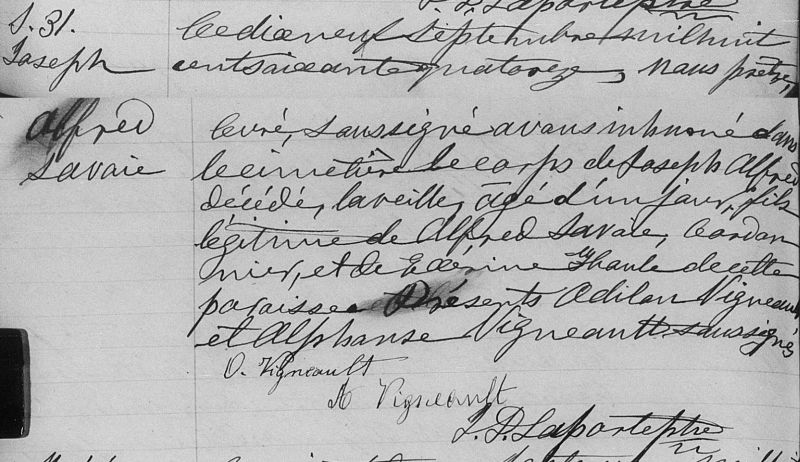 J. D. Laporte ptre
S. 31.
Joseph
Alfred
Savoie
Le dix neuf Septembre mil huit
cent soixante quatorze, nous prêtre,
curé, soussigné avons inhumé dans
le cimetière le corps de Joseph Alfred
décédé, la veille, âgé d'un jour, fils
légitime de Alfred Savoie, Cordon
nier, et de Thaule de cette
paroisse. Présents Odilon Vigneault
et Alphonse Vigneault soussignés
O. Vigneault
A Vigneault
J. D. Laporte ptre